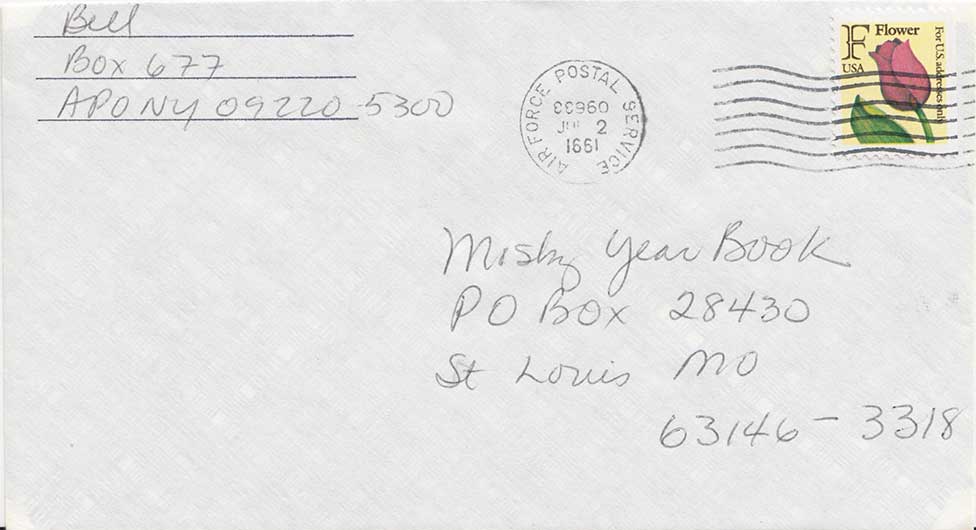 Bell
Box 677
APO NY 09220-5300
AIR FORCE POSTAL SERVICE
09633
JUL 2
1991
F Flower
USA
For U.S. addresses only
Year Book
PO Box 28430
St Louis MO
63146-3318